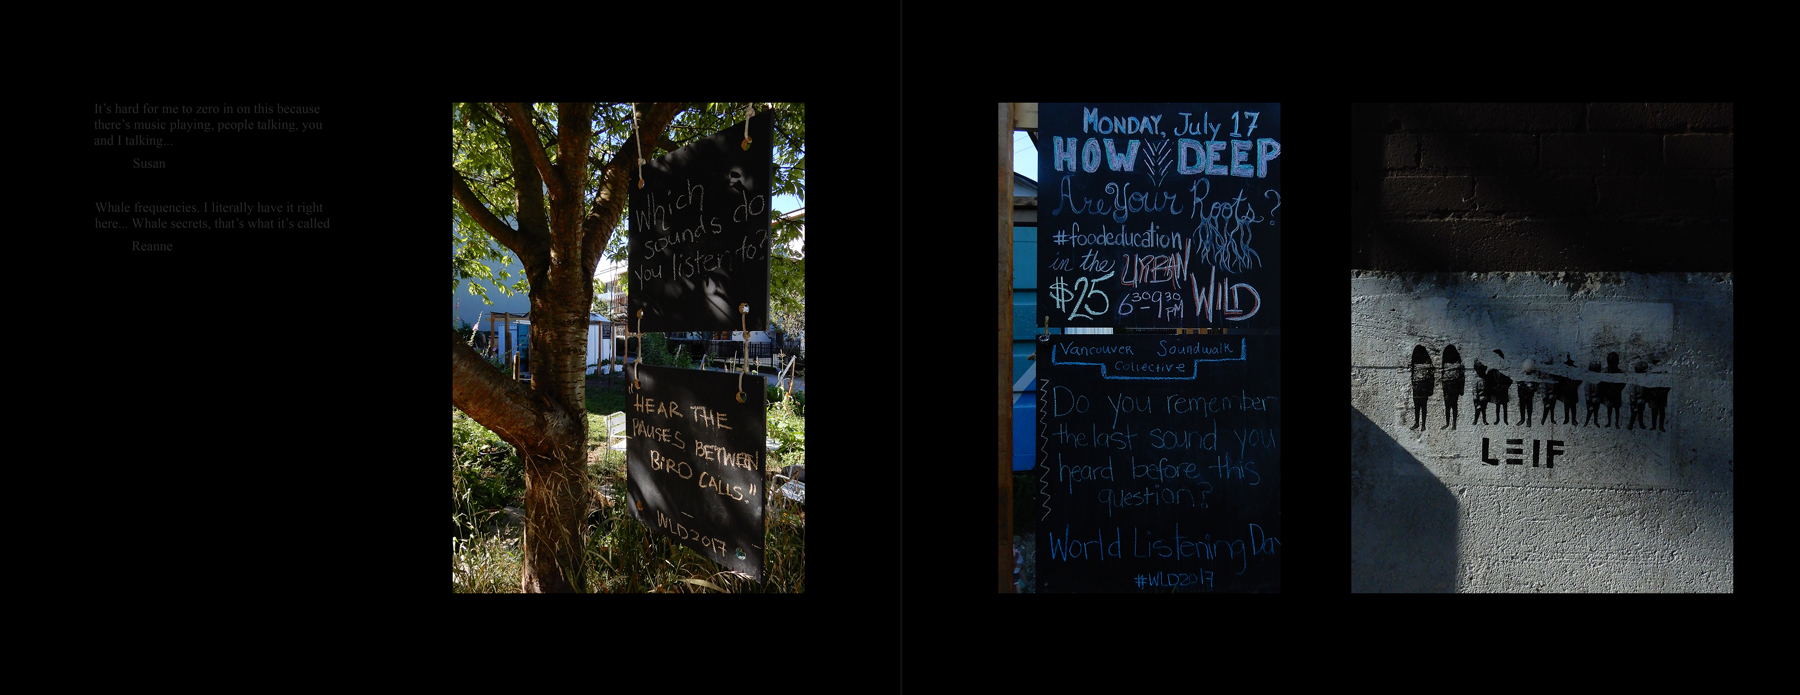 It's hard for me to zero in on this because
there's music playing, people talking, you
and I talking...
Susan
Whale frequencies. I literally have it right
here... Whale secrets, that's what it's called
Reanne
Which
sounds do
you listen to?
"HEAR THE
PAUSES BETWEEN
BIRD CALLS."
—
WLD2017
MONDAY, July 17
HOW DEEP
Are Your Roots?
#foodeducation
in the URBAN
$25 6³⁰-9³⁰ PM WILD
Vancouver Soundwalk
Collective
Do you remember
the last sound you
heard before this
question?
World Listening Day
#WLD2017
LEIF